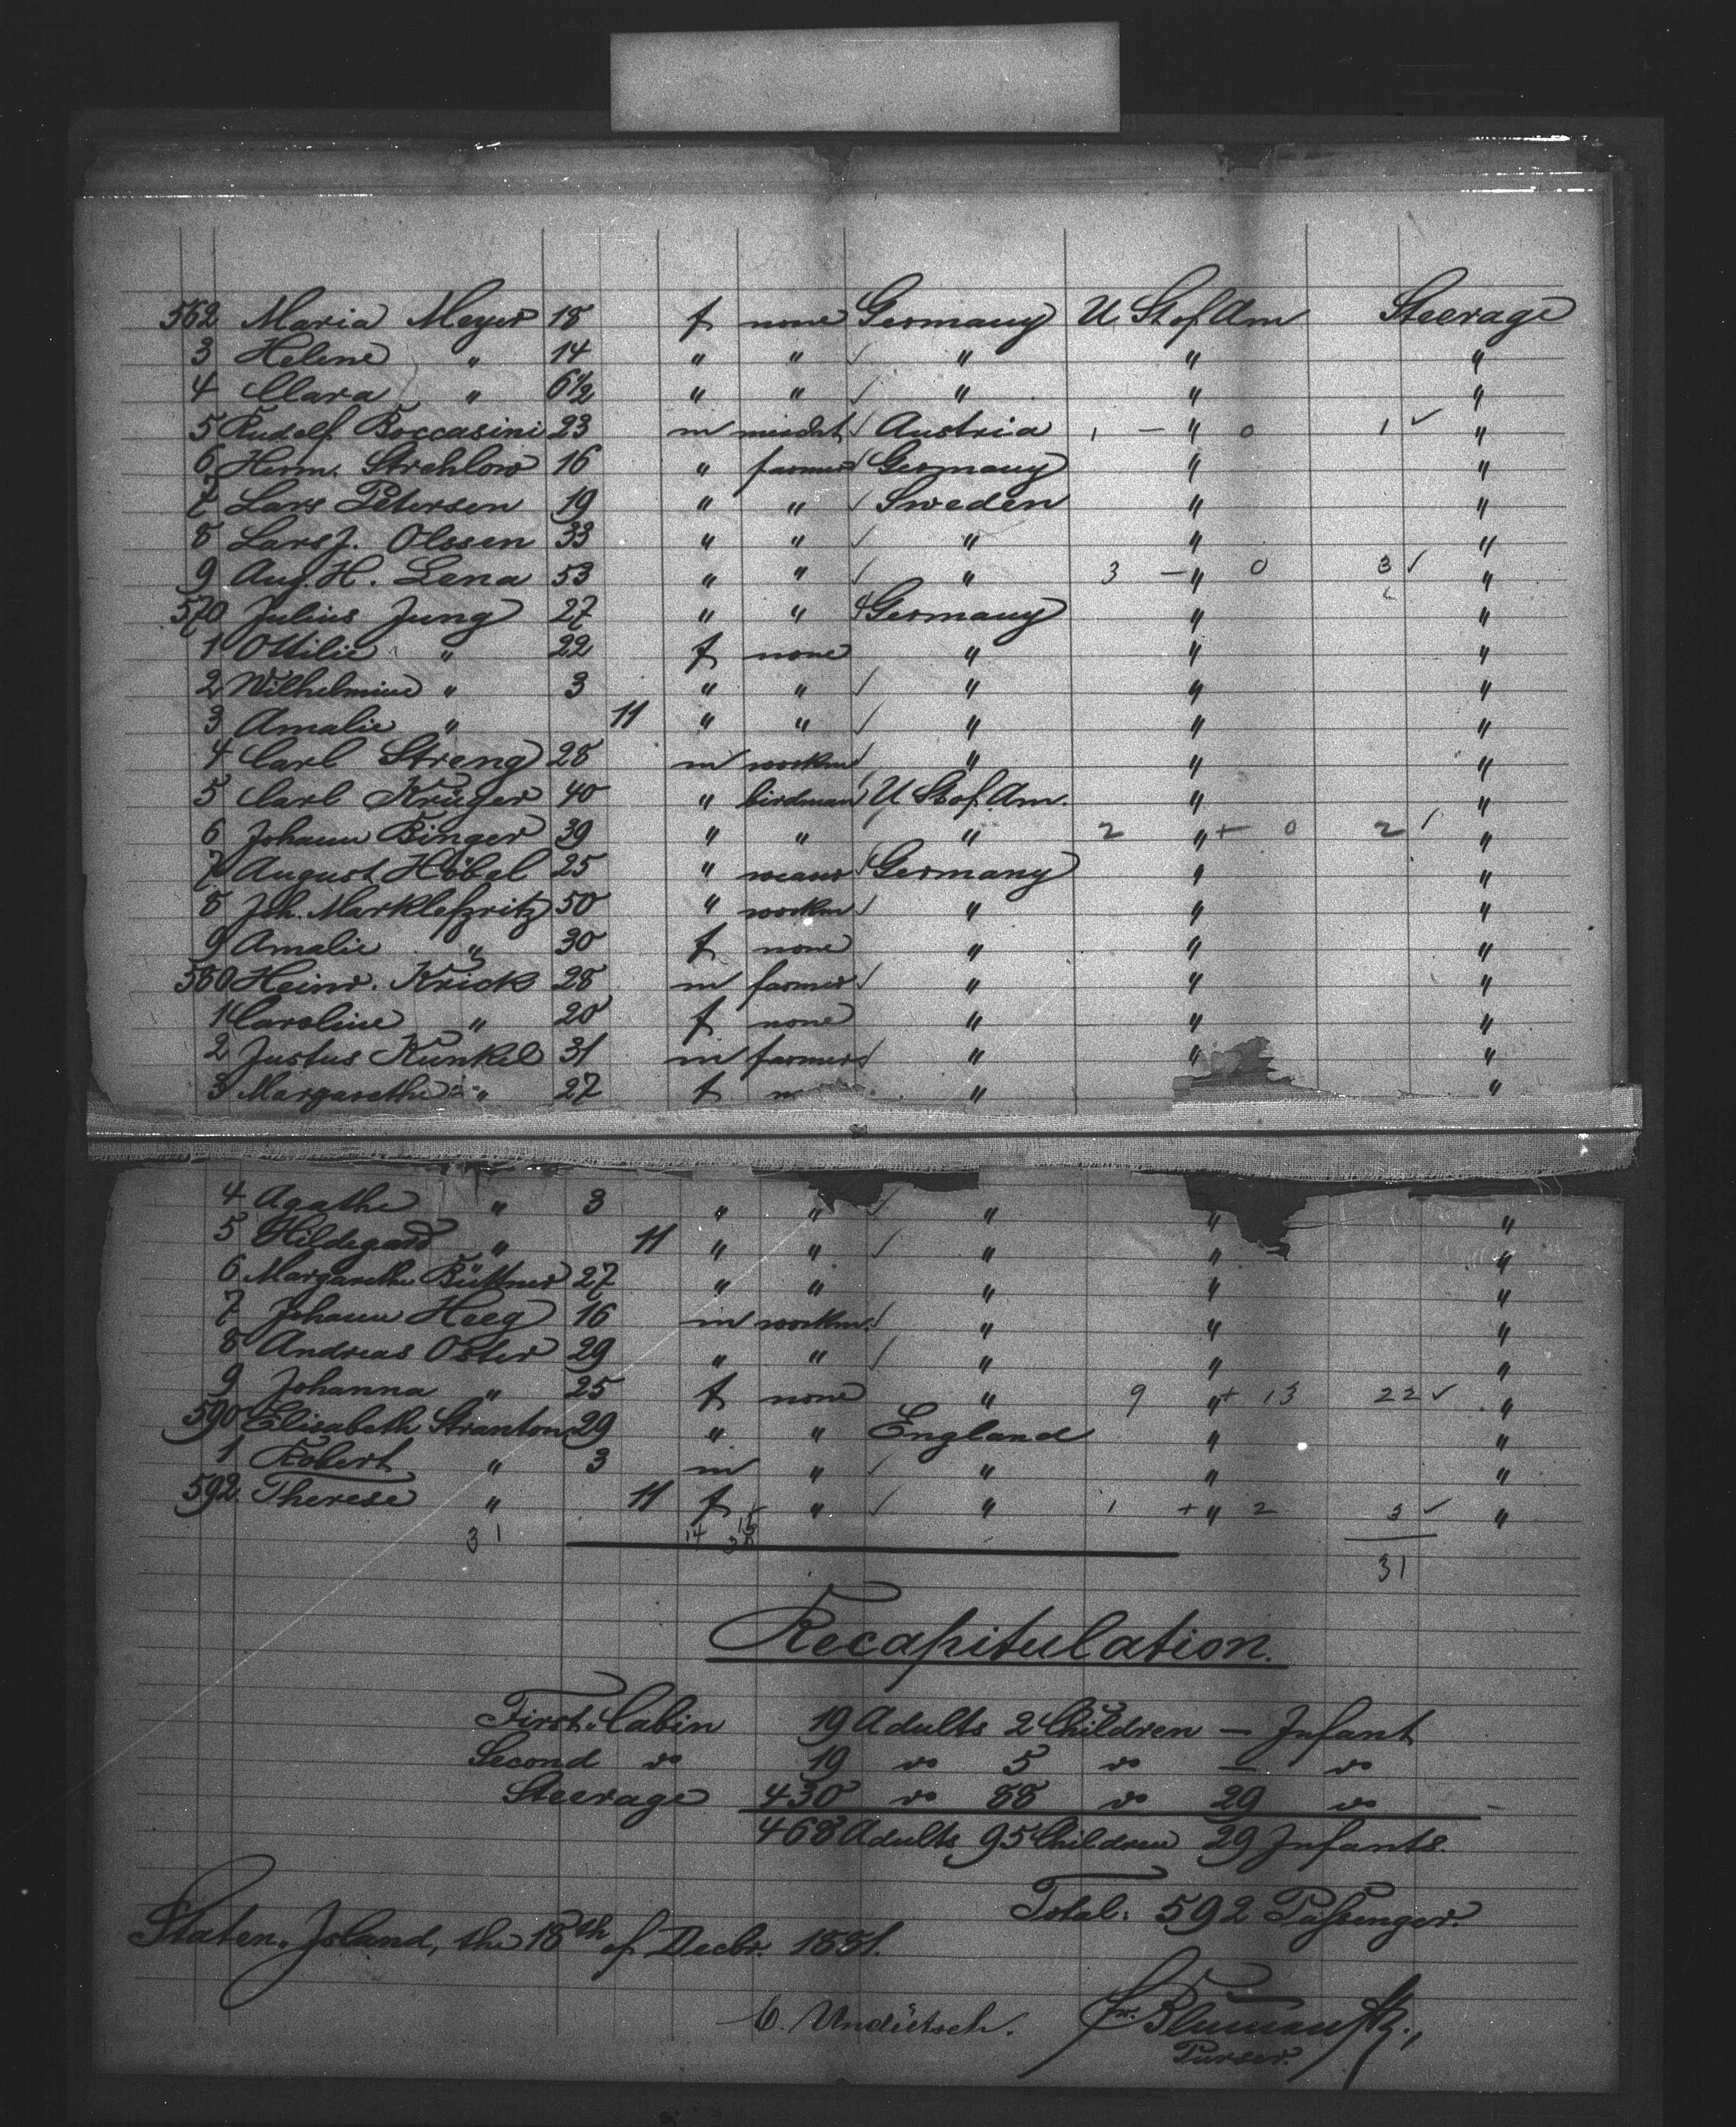 562 Maria Meyer 18 f none Germany U St of Am Steerage
3 Helene " 14 " " " " "
4 Clara " 6½ " " " " "
5 Rudolf Boccasini 23 m mercht Austria 1 — " 0 1 "
6 Herm. Strehlow 16 " farmer Germany " "
7 Lars Petersen 19 " " Sweden " "
8 Lars J. Olssen 33 " " " " "
9 Aug. H. Lena 53 " " " 3 — " 0 3 "
570 Julius Jung 27 " " Germany " "
1 Ottilie " 22 f none " " "
2 Wilhelmine " 3 " " " " "
3 Amalie " 11 " " " " "
4 Carl Streng 28 m workm " " "
5 Carl Krüger 40 " birdman U St of Am. " "
6 Johann Binger 39 " " " 2 " + 0 2 "
7 August Höbel 25 " weaver Germany " "
8 Joh. 50 " workm " " "
9 Amalie " 30 f none " " "
580 Heinr. Krick 28 m farmer " " "
1 Caroline " 20 f none " " "
2 Justus Kunkel 31 m farmer " " "
3 Margarethe " 27 f " "
4 Agathe " 3 " " " " "
5 Hildegard " 11 " " " " "
6 Margarethe Büttner 27 " " " " "
7 Johann Heeg 16 m workm. " " "
8 Andreas Oster 29 " " " " "
9 Johanna " 25 f none " 9 " + 13 22 "
590 Elisabeth Stranton 29 " " England " "
1 Robert " 3 m " " " "
592 Therese " 11 f " " 1 + " 2 3 "
31 14 31
Recapitulation.
First Cabin 19 Adults 2 Children — Infant
Second do 19 do 5 do — do
Steerage 430 do 88 do 29 do
468 Adults 95 Children 29 Infants.
Total: 592 Paßenger.
Staten Island, the 18th of Decbr. 1881.
Purser.